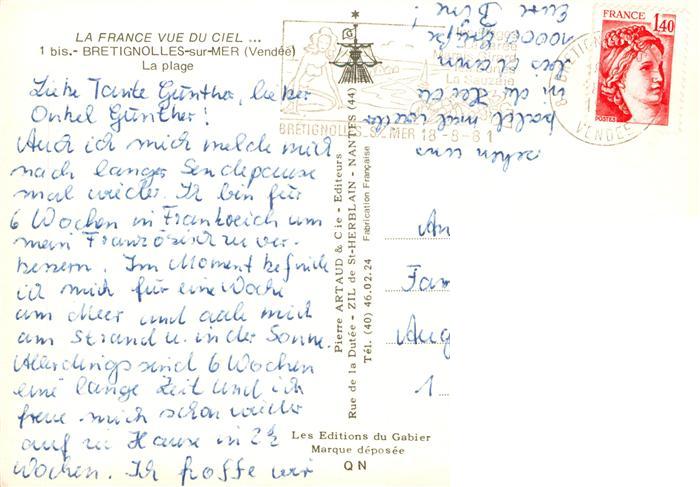 LA FRANCE VUE DU CIEL ...
1 bis.- BRETIGNOLLES-sur-MER (Vendée)
La plage
Liebe Tante Günther, lieber
Onkel Günther!
Auch ich mich melde mich
nach langer Sendepause
mal wieder. Ich bin für
6 Wochen in Frankreich um
mein Französisch zu ver-
bessern. Im Moment befinde
ich mich für eine Woche
am Meer und aale mich
am Strand u. in der Sonne.
Allerdings sind 6 Wochen
eine lange Zeit und ich
freue mich schon wieder
auf zu Hause in 2½
Wochen. Ich hoffe wir
sehen uns
bald mal wieder
in
10000 Grüße
Eure
Pierre ARTAUD & Cie - Editeurs
Rue de la Dutée - ZIL de St-HERBLAIN - NANTES (44)
Tél. (40) 46.02.24 Fabrication Française
Les Editions du Gabier
Marque déposée
QN
BRETIGNOLLES S. MER 18-8-81
VENDEE
FRANCE
1,40
POSTES
An
Fam
Aug
1